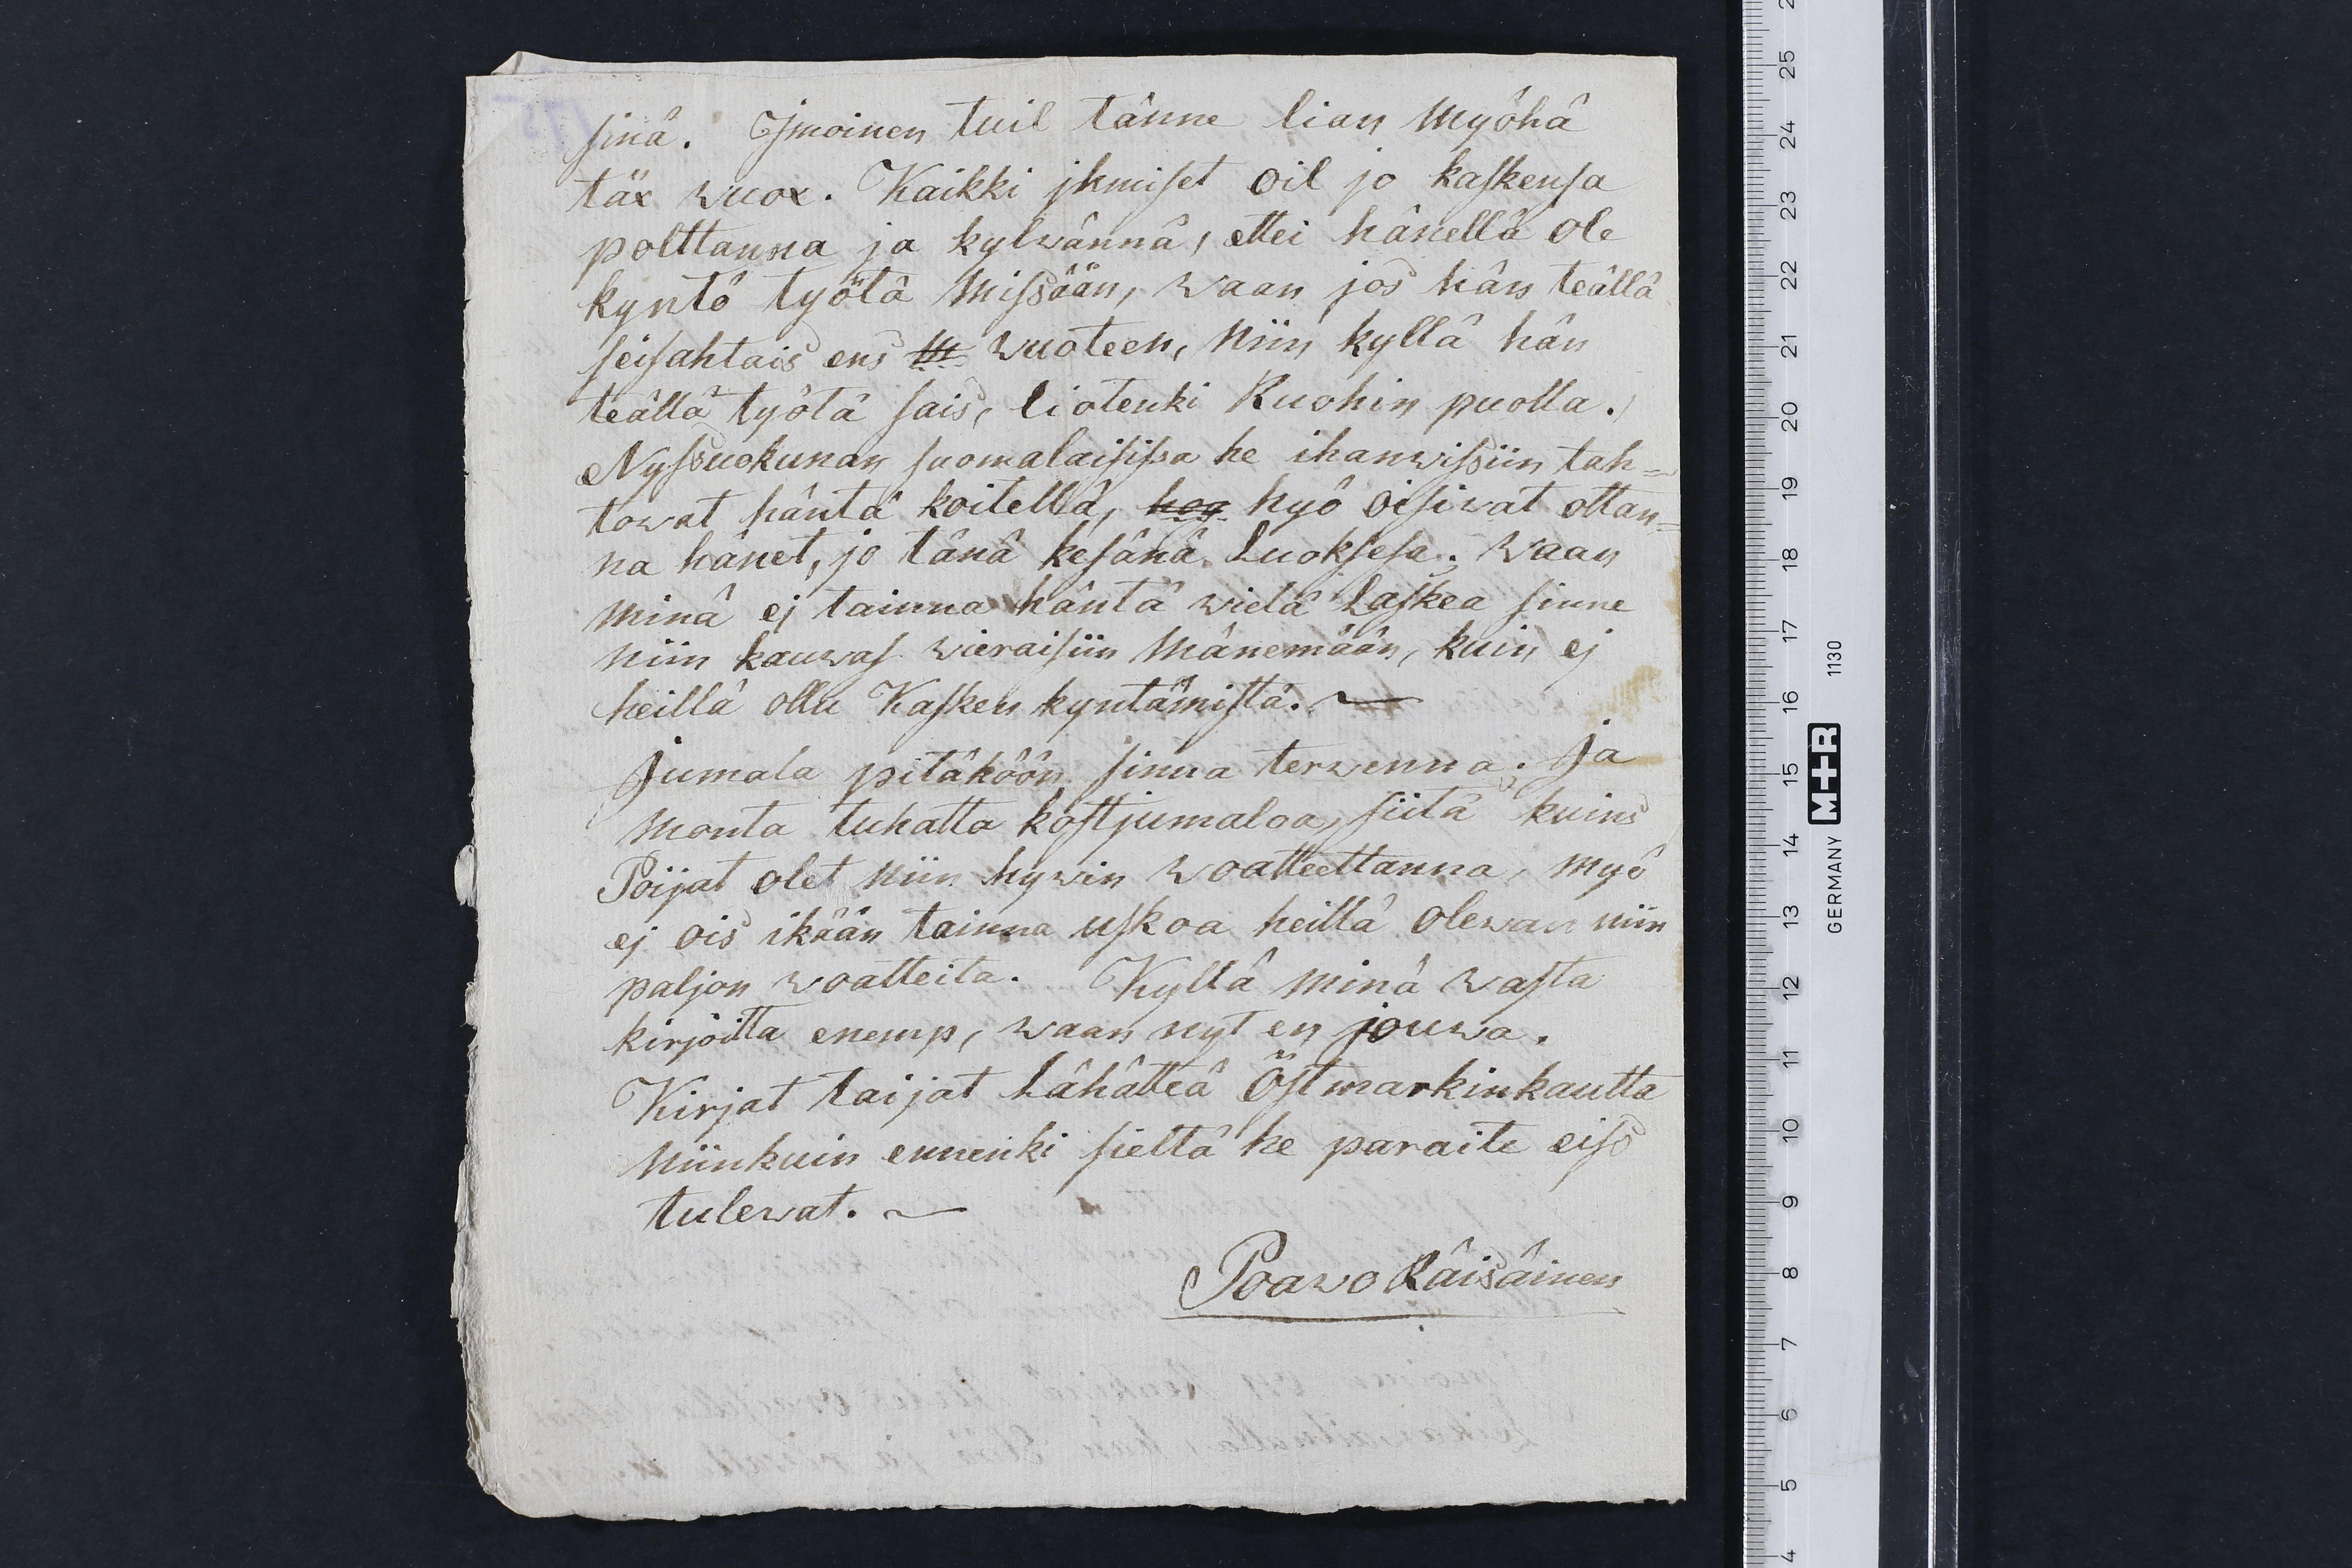 sinä. Ijmoinen tuil tänne lian myöhä
täx wuox. Kaikki jhmiset oil jo kaskensa
polttanna ja kylwännä, ettei hänellä ole
kyntö työtä missään, waan jos hän teällä
seisahtais ens wuoteen, niin kyllä hän
teällä työtä sais, liotenki Ruohin puolla.
Nyssuokunan suomalaisissa he ihanwissiin tah=
towat häntä koitella, hyö oisiwat ottan=
na hänet, jo tänä kesänä luoksesa; waan
minä ej tainna häntä wielä laskea sinne
niin kauwas wieraisiin mänemään, kuin ej
heillä ollu Kasken kyntämistä.
Jumala pitäköön sinua terwennä; ja
monta tuhatta kostjumaloa, siitä kuins
Poijat olet niin hywin woatteettanna, myö
ej ois ikään tainna uskoa heillä olewan niin
paljon woatteita. Kyllä minä wasta
kirjoitta enemp, waan nyt en jouwa.
Kirjat taijat lähätteä Östmarkinkautta
niinkuin ennenki sieltä he paraite eiso
tulewat.
Poawo Räisäinen
GERMANY M+R 1130
25
24
23
22
21
20
19
18
17
16
15
14
13
12
11
10
9
8
7
6
5
4